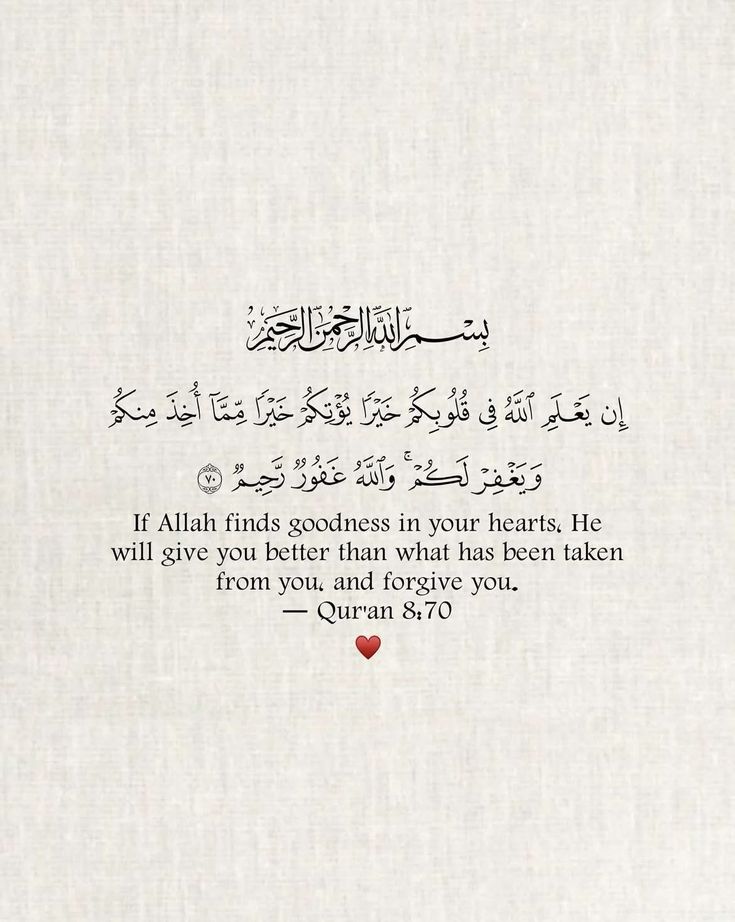 بِسْمِ اللَّهِ الرَّحْمَٰنِ الرَّحِيمِ
إِن يَعْلَمِ ٱللَّهُ فِى قُلُوبِكُمْ خَيْرًا يُؤْتِكُمْ خَيْرًا مِّمَّآ أُخِذَ مِنكُمْ
وَيَغْفِرْ لَكُمْ ۚ وَٱللَّهُ غَفُورٌ رَّحِيمٌ ٧٠
If Allah finds goodness in your hearts, He
will give you better than what has been taken
from you, and forgive you.
— Qur'an 8:70